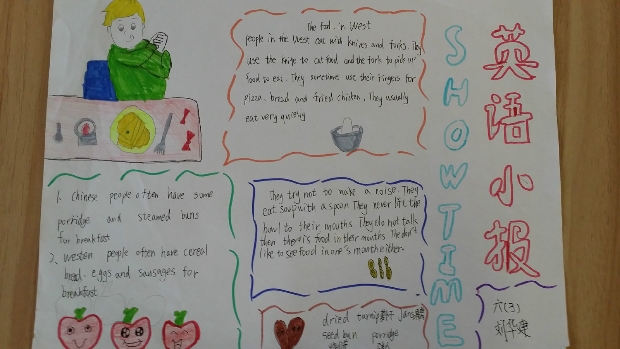 The food in West
people in the West eat with knives and forks. They
use the knife to cut food and the fork to pick up
food to eat. They sometimes use their fingers for
pizza, bread and fried chicken. They usually
eat very quiety
SHOWTIME
英语小报
1. Chinese people often have some
porridge and steamed buns
for breakfast
2. Westen people often have cereal
bread, eggs and sausages for
breakfast
They try not to make a noise. They
eat soup with a spoon. They never lift the
bowl to their mouths. They do not talk
then there is food in their mouths.
like to see food in one's mouth either.
dried turnip
seed bun porridge
六(3)
刘华建